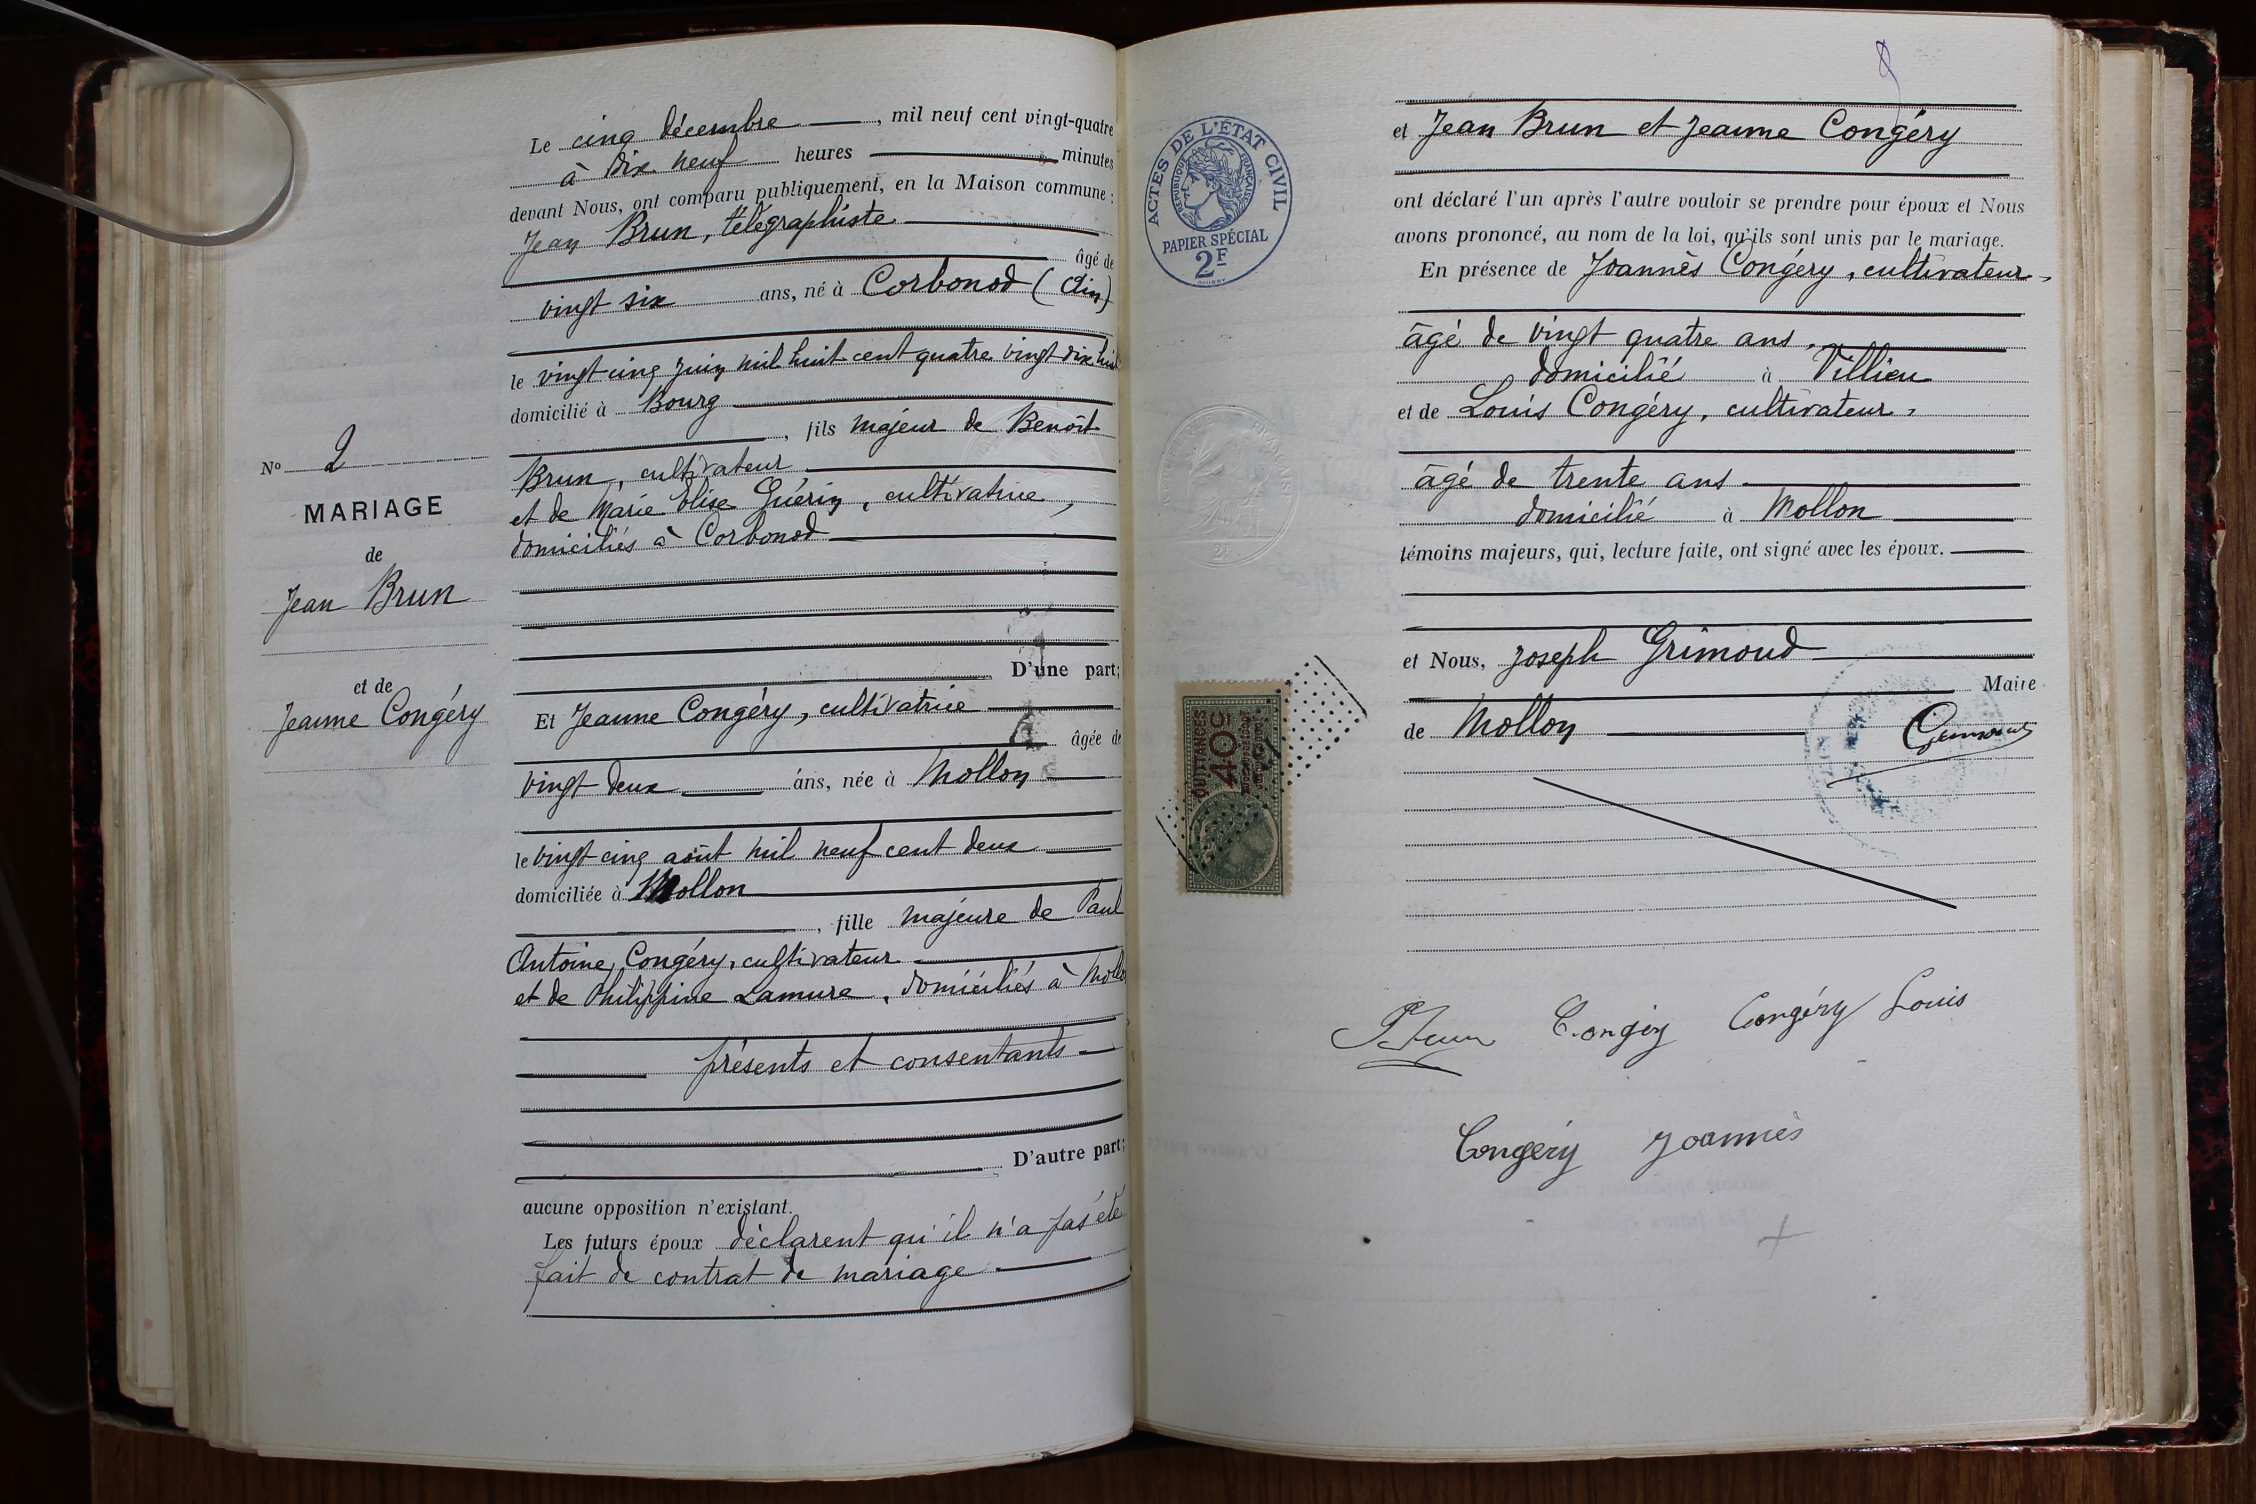 Le cinq décembre, mil neuf cent vingt-quatre
à dix neuf heures minutes
devant Nous, ont comparu publiquement, en la Maison commune :
Jean Brun, télégraphiste
âgé de
vingt six ans, né à Corbonod (Ain)
le vingt cinq juin mil huit cent quatre vingt dix huit
domicilié à Bourg
, fils majeur de Benoît
Brun, cultivateur
et de Marie Elise Guérin, cultivatrice,
domiciliés à Corbonod
D'une part;
Nº 2
MARIAGE
de
Jean Brun
et de
Jeanne Congéry
Et Jeanne Congéry, cultivatrice
âgée de
vingt deux ans, née à Mollon
le vingt cinq août mil neuf cent deux
domiciliée à Mollon
, fille majeure de Paul
Antoine Congéry, cultivateur
et de Philippine Lamure, domiciliés à Mollon
présents et consentants
D'autre part;
aucune opposition n'existant.
Les futurs époux déclarent qu'il n'a pas été
fait de contrat de mariage
ACTES DE L'ÉTAT CIVIL
RÉPUBLIQUE FRANÇAISE
PAPIER SPÉCIAL
2F
et Jean Brun et Jeanne Congéry
ont déclaré l'un après l'autre vouloir se prendre pour époux et Nous
avons prononcé, au nom de la loi, qu'ils sont unis par le mariage.
En présence de Joannès Congéry, cultivateur,
âgé de vingt quatre ans,
domicilié à Villieu
et de Louis Congéry, cultivateur,
âgé de trente ans
domicilié à Mollon
témoins majeurs, qui, lecture faite, ont signé avec les époux.
et Nous, Joseph Grimoud
Maire
de Mollon
QUITTANCES
40c
Congéry Congéry Louis
Congéry Joannès